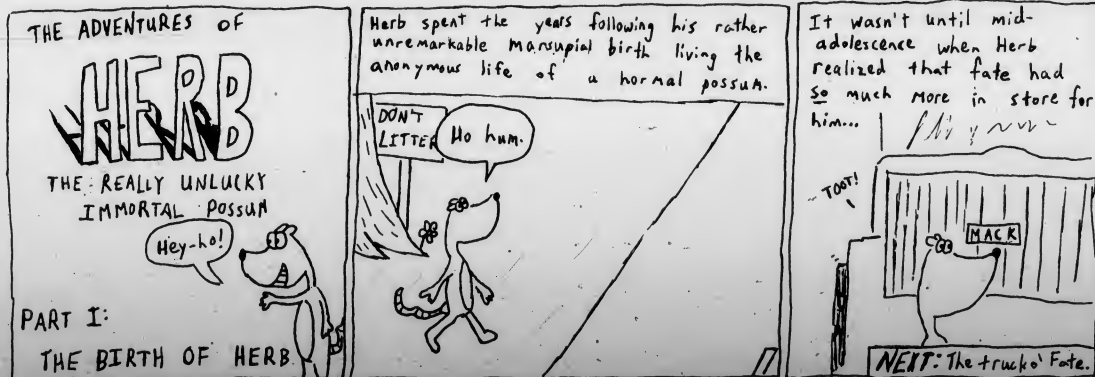 THE ADVENTURES OF
HERB
THE REALLY UNLUCKY
IMMORTAL POSSUM
Hey-ho!
PART I:
THE BIRTH OF HERB
Herb spent the years following his rather
unremarkable marsupial birth living the
anonymous life of a normal possum.
DON'T
LITTER
Ho hum.
It wasn't until mid-
adolescence when Herb
realized that fate had
so much more in store for
him...
TOOT!
MACK
NEXT: The truck o' Fate.